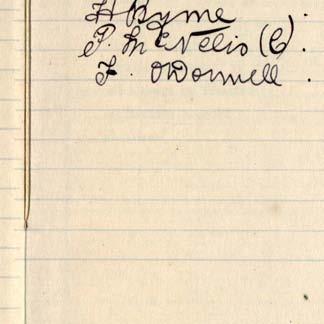 H Byrne .
P. McEvelio (C) .
F. O'Donnell .